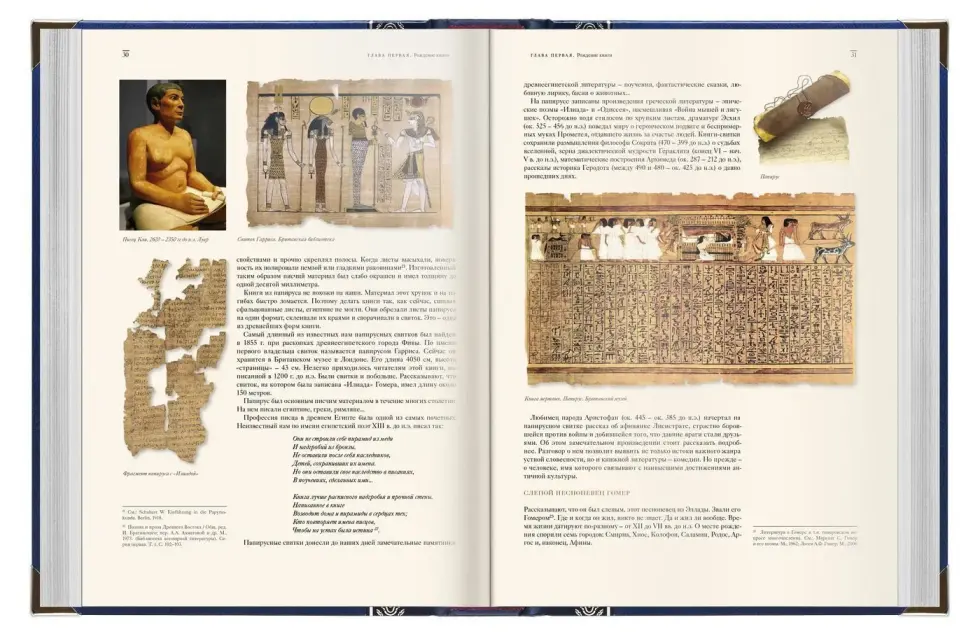 30
ГЛАВА ПЕРВАЯ. Рождение книги
Писец Каи. 2620 – 2350 гг. до н.э. Лувр
Свиток Гарриса. Британская библиотека
свойствами и прочно скреплял полосы. Когда листы высыхали, поверх-
ность их полировали пемзой или гладкими раковинами
таким образом писчий материал был слабо окрашен и имел толщину до
одной десятой миллиметра.
Книги из папируса не похожи на наши. Материал этот хрупок и на из-
гибах быстро ломается. Поэтому делать книги так, как сейчас,
сфальцованные листы, египтяне не могли. Они обрезали листы папируса
на один формат, склеивали их краями и сворачивали в свиток. Это – одна
из древнейших форм книги.
Самый длинный из известных нам папирусных свитков был найден
в 1855 г. при раскопках древнеегипетского города Фивы. По имени
первого владельца свиток называется папирусом Гарриса. Сейчас он
хранится в Британском музее в Лондоне. Его длина 4050 см, высота
«страницы» – 43 см. Нелегко приходилось читателям этой книги, на-
писанной в 1200 г. до н.э. Были свитки и побольше. Рассказывают, что
свиток, на котором была записана «Илиада» Гомера, имел длину около
150 метров.
Папирус был основным писчим материалом в течение многих столетий.
На нем писали египтяне, греки, римляне...
Профессия писца в древнем Египте была одной из самых почетных.
Неизвестный нам по имени египетский поэт XIII в. до н.э. писал так:
Они не строили себе пирамид из меди
И надгробий из бронзы.
Не оставили после себя наследников,
Детей, сохранивших их имена.
Но они оставили свое наследство в писаниях,
В поучениях, сделанных ими...
Книга лучше расписного надгробья и прочной стены.
Написанное в книге
Возводит дома и пирамиды в сердцах тех,
Кто повторяет имена писцов,
Чтобы на устах была истина
Папирусные свитки донесли до наших дней замечательные памятники
Фрагмент папируса с «Илиадой»
См.: Schubart W. Einführung in die Papyrus-
kunde. Berlin, 1918.
Поэзия и проза Древнего Востока / Общ. ред.
И. Брагинского; пер. А.А. Ахматовой и др. М.,
1973. (Библиотека всемирной литературы). Се-
рия первая. Т. 1. С. 102–103.
ГЛАВА ПЕРВАЯ. Рождение книги
31
древнеегипетской литературы – поучения, фантастические сказки, лю-
бовную лирику, басни о животных...
На папирусе записаны произведения греческой литературы – эпиче-
ские поэмы «Илиада» и «Одиссея», насмешливая «Война мышей и лягу-
шек». Осторожно водя стилосом по хрупким листам, драматург Эсхил
(ок. 525 – 456 до н.э.) поведал миру о героическом подвиге и беспример-
ных муках Прометея, отдавшего жизнь за счастье людей. Книги-свитки
сохранили размышления философа Сократа (470 – 399 до н.э.) о судьбах
вселенной, зерна диалектической мудрости Гераклита (конец VI – нач.
V в. до н.э.), математические построения Архимеда (ок. 287 – 212 до н.э.),
рассказы историка Геродота (между 490 и 480 – ок. 425 до н.э.) о давно
прошедших днях.
Папирус
Книга мертвых. Папирус. Британский музей
Любимец народа Аристофан (ок. 445 – ок. 385 до н.э.) начертал на
папирусном свитке рассказ об афинянке Лисистрате, страстно боров-
шейся против войны и добившейся того, что давние враги стали друзь-
ями. Об этом замечательном произведении стоит рассказать подроб-
нее. Разговор о нем позволит выявить не только истоки важного жанра
устной словесности, но и книжной литературы – комедии. Но прежде –
о человеке, имя которого связывают с наивысшими достижениями ан-
тичной культуры.
СЛЕПОЙ ПЕСНОПЕВЕЦ ГОМЕР
Рассказывают, что он был слепым, этот песнопевец из Эллады. Звали его
Гомером. Где и когда он жил, никто не знает. Да и жил ли вообще. Вре-
мя жизни датируют по-разному – от XII до VII вв. до н.э. О месте рожде-
ния спорили семь городов: Смирна, Хиос, Колофон, Саламин, Родос, Ар-
гос и, наконец, Афины.